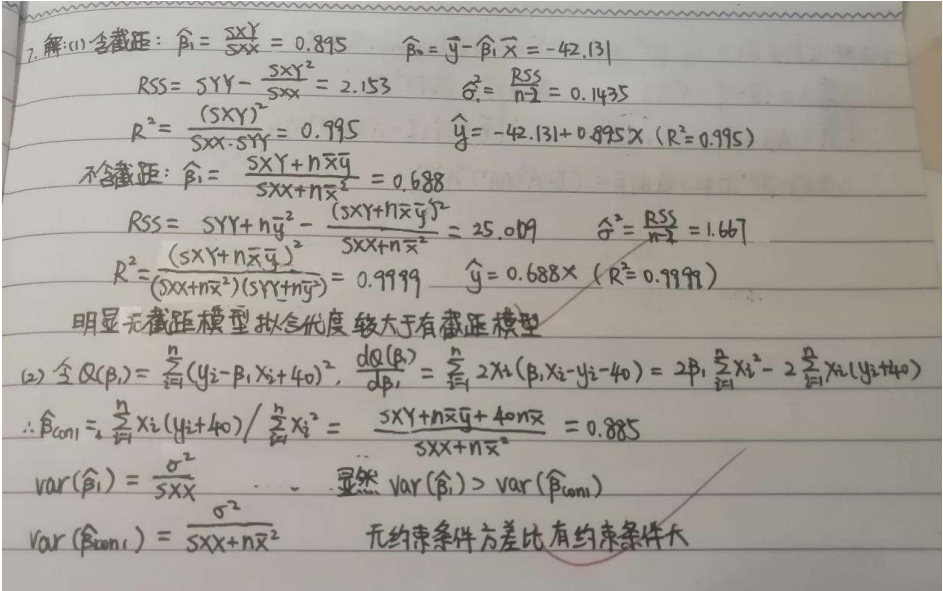 7. 解:(1) 含截距: β̂₁ = SXY/SXX = 0.895 β̂₀ = ȳ - β̂₁x̄ = -42.131
RSS = SYY - SXY²/SXX = 2.153 σ̂² = RSS/(n-2) = 0.1435
R² = (SXY)²/(SXX·SYY) = 0.995 ŷ = -42.131 + 0.895x (R² = 0.995)
不含截距: β̂₁ = (SXY + nx̄ȳ)/(SXX + nx̄²) = 0.688
RSS = SYY + nȳ² - (SXY + nx̄ȳ)²/(SXX + nx̄²) = 25.009 σ̂² = RSS/(n-2) = 1.667
R² = (SXY + nx̄ȳ)²/((SXX + nx̄²)(SYY + nȳ²)) = 0.9999 ŷ = 0.688x (R² = 0.9999)
明显无截距模型拟合优度较大于有截距模型
(2) 令 Q(β₁) = Σᵢ₌₁ⁿ (yᵢ - β₁xᵢ + 40)², dQ(β₁)/dβ₁ = Σᵢ₌₁ⁿ 2xᵢ(β₁xᵢ - yᵢ - 40) = 2β₁ Σᵢ₌₁ⁿ xᵢ² - 2 Σᵢ₌₁ⁿ xᵢ(yᵢ + 40)
∴ β̂con1 = Σᵢ₌₁ⁿ xᵢ(yᵢ + 40) / Σᵢ₌₁ⁿ xᵢ² = (SXY + nx̄ȳ + 40nx̄)/(SXX + nx̄²) = 0.885
var(β̂₁) = σ²/SXX 显然 var(β̂₁) > var(β̂con1)
var(β̂con1) = σ²/(SXX + nx̄²) 无约束条件方差比有约束条件大